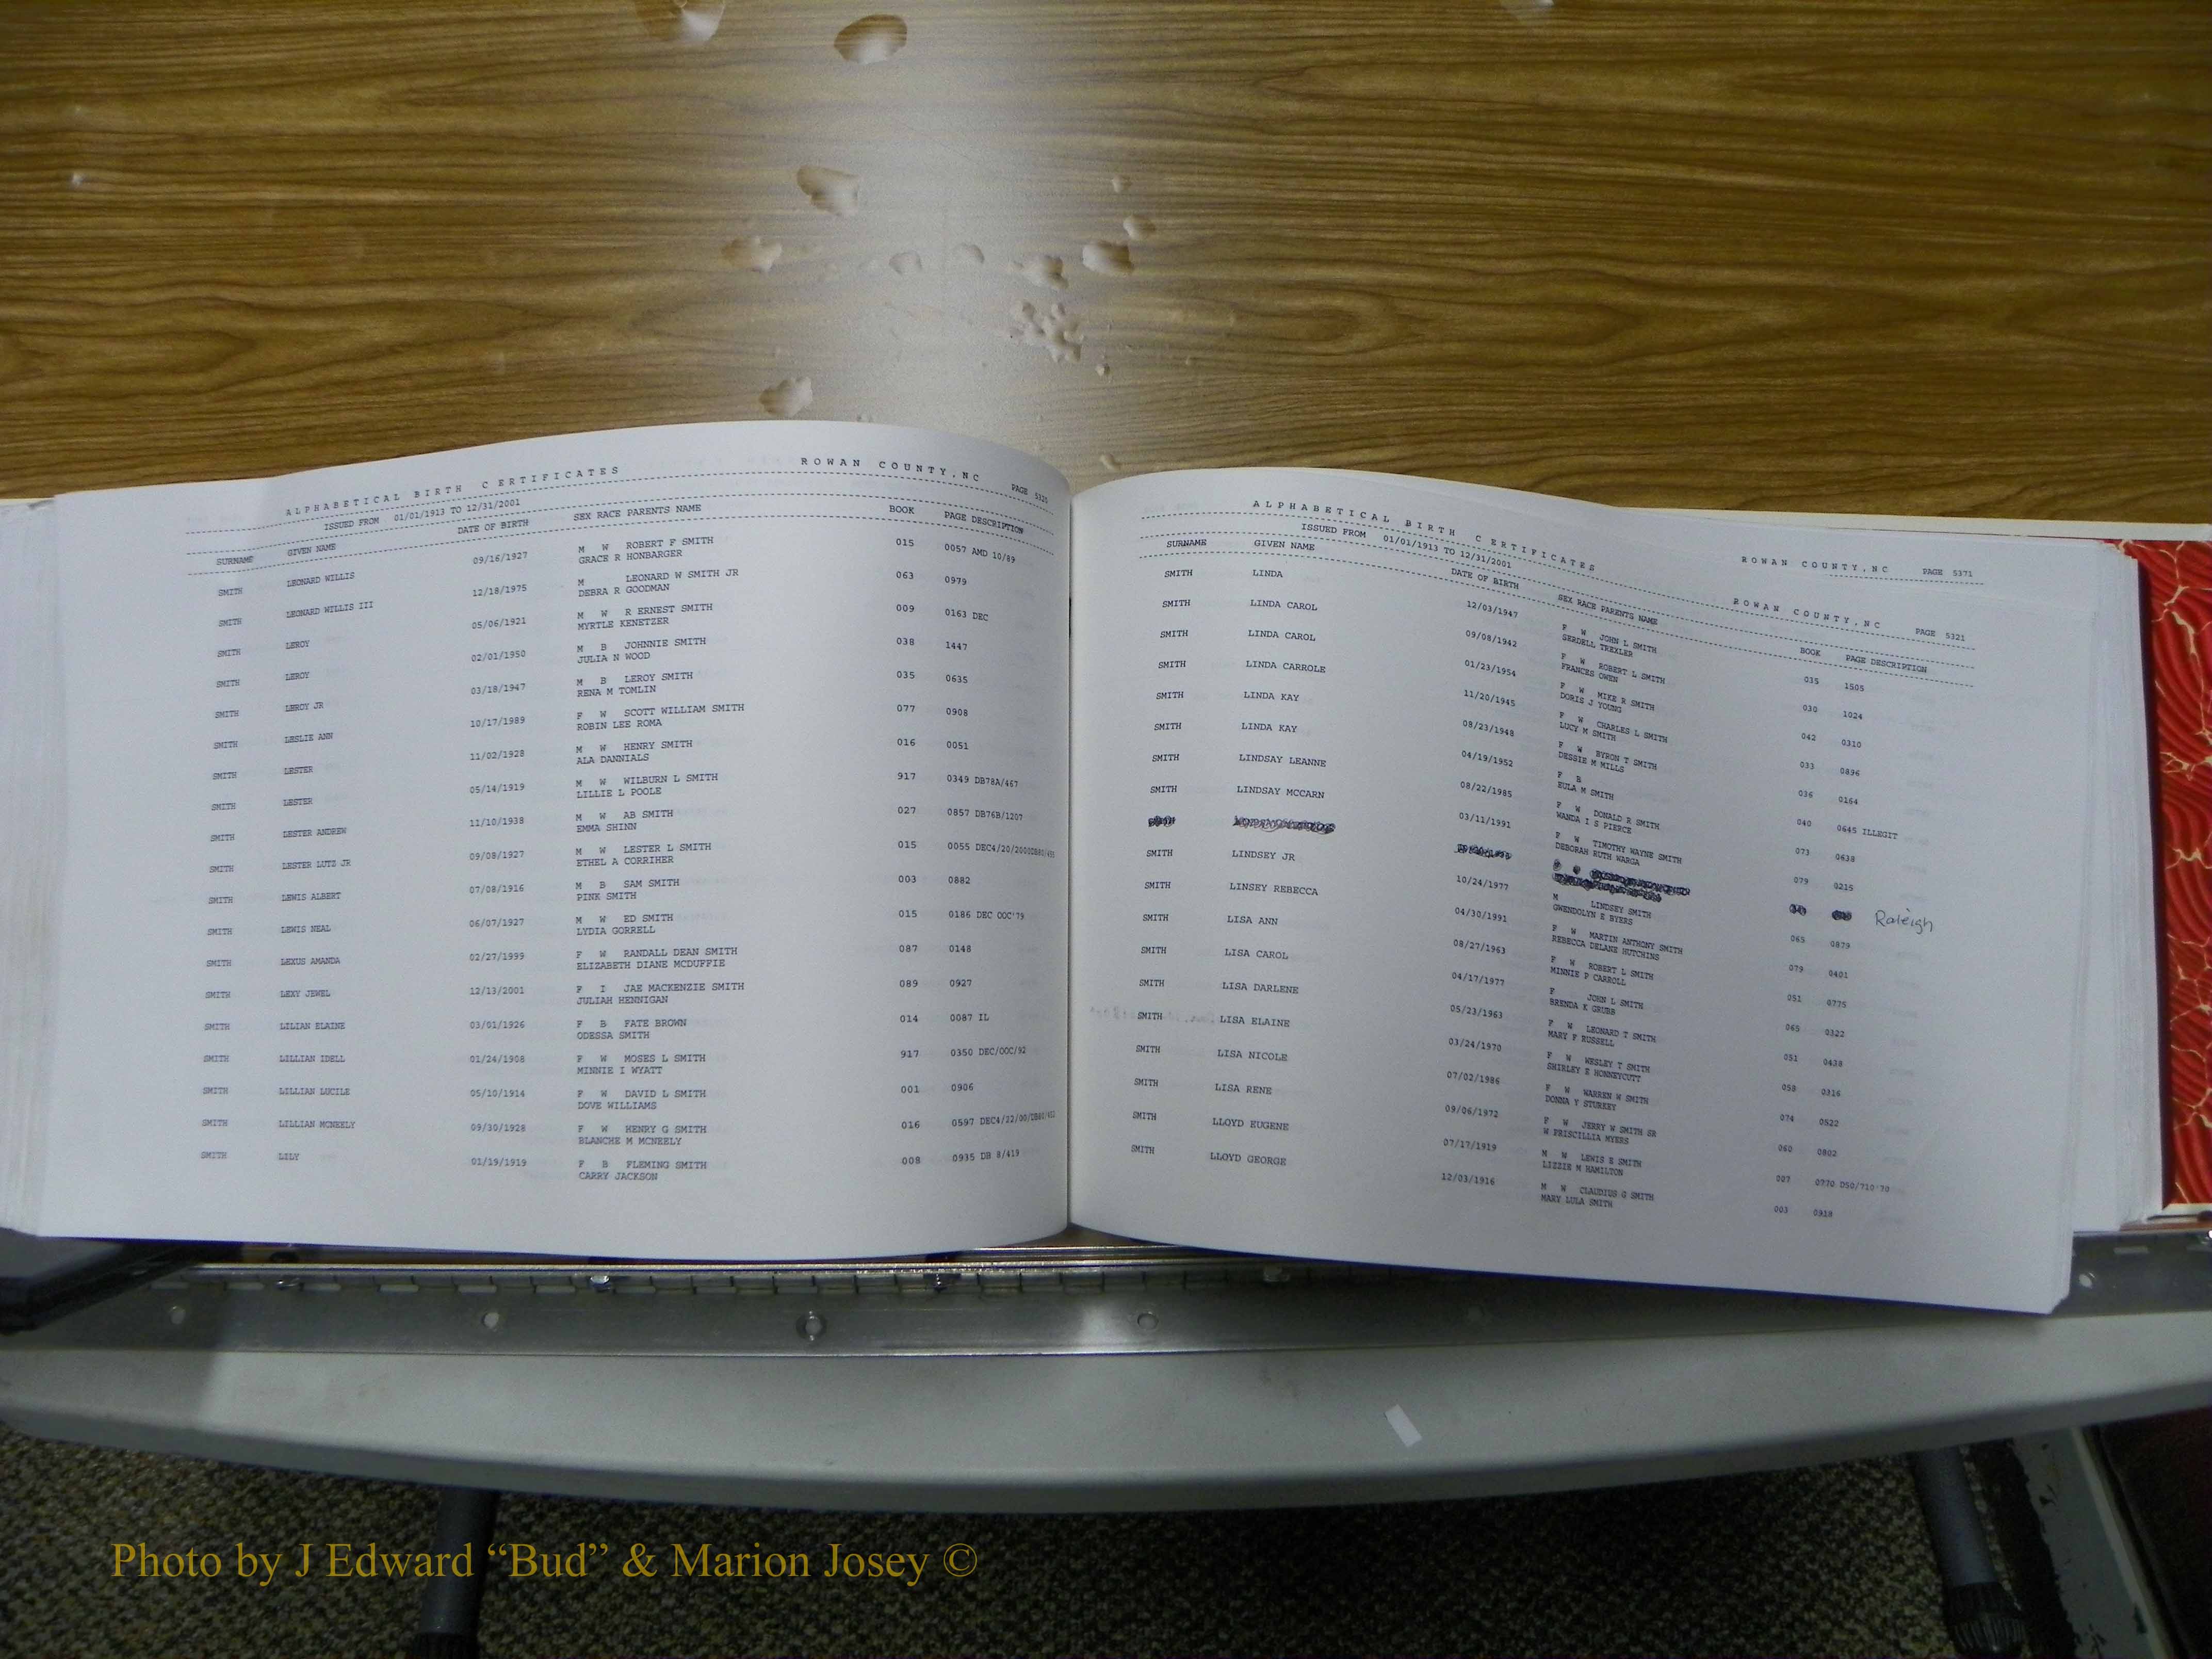 ALPHABETICAL BIRTH CERTIFICATES ROWAN COUNTY,NC PAGE 5320
ISSUED FROM 01/01/1913 TO 12/31/2001
SURNAME GIVEN NAME DATE OF BIRTH SEX RACE PARENTS NAME BOOK PAGE DESCRIPTION
SMITH LEONARD WILLIS 09/16/1927 M W ROBERT F SMITH 015 0057 AMD 10/89
GRACE R HONBARGER
SMITH LEONARD WILLIS III 12/18/1975 M LEONARD W SMITH JR 063 0979
DEBRA R GOODMAN
SMITH LEROY 05/06/1921 M W R ERNEST SMITH 009 0163 DEC
MYRTLE KENETZER
SMITH LEROY 02/01/1950 M B JOHNNIE SMITH 038 1447
JULIA N WOOD
SMITH LEROY JR 03/18/1947 M B LEROY SMITH 035 0635
RENA M TOMLIN
SMITH LESLIE ANN 10/17/1989 F W SCOTT WILLIAM SMITH 077 0908
ROBIN LEE ROMA
SMITH LESTER 11/02/1928 M W HENRY SMITH 016 0051
ALA DANNIALS
SMITH LESTER 05/14/1919 M W WILBURN L SMITH 917 0349 DB78A/467
LILLIE L POOLE
SMITH LESTER ANDREW 11/10/1938 M W AB SMITH 027 0857 DB76B/1207
EMMA SHINN
SMITH LESTER LUTZ JR 09/08/1927 M W LESTER L SMITH 015 0055 DEC4/20/2000DB80/455
ETHEL A CORRIHER
SMITH LEWIS ALBERT 07/08/1916 M B SAM SMITH 003 0882
PINK SMITH
SMITH LEWIS NEAL 06/07/1927 M W ED SMITH 015 0186 DEC OOC'79
LYDIA GORRELL
SMITH LEXUS AMANDA 02/27/1999 F W RANDALL DEAN SMITH 087 0148
ELIZABETH DIANE MCDUFFIE
SMITH LEXY JEWEL 12/13/2001 F I JAE MACKENZIE SMITH 089 0927
JULIAH HENNIGAN
SMITH LILIAN ELAINE 03/01/1926 F B FATE BROWN 014 0087 IL
ODESSA SMITH
SMITH LILLIAN IDELL 01/24/1908 F W MOSES L SMITH 917 0350 DEC/OOC/92
MINNIE I WYATT
SMITH LILLIAN LUCILE 05/10/1914 F W DAVID L SMITH 001 0906
DOVE WILLIAMS
SMITH LILLIAN MCNEELY 09/30/1928 F W HENRY G SMITH 016 0597 DEC4/22/00/DB80/452
BLANCHE M MCNEELY
SMITH LILY 01/19/1919 F B FLEMING SMITH 008 0935 DB 8/419
CARRY JACKSON
ROWAN COUNTY,NC PAGE 5371
ALPHABETICAL BIRTH CERTIFICATES ROWAN COUNTY,NC PAGE 5321
ISSUED FROM 01/01/1913 TO 12/31/2001
SURNAME GIVEN NAME DATE OF BIRTH SEX RACE PARENTS NAME BOOK PAGE DESCRIPTION
SMITH LINDA 12/03/1947 F W JOHN L SMITH 035 1505
SERDELL TREXLER
SMITH LINDA CAROL 09/08/1942 F W ROBERT L SMITH 030 1024
FRANCES OWEN
SMITH LINDA CAROL 01/23/1954 F W MIKE R SMITH 042 0310
DORIS J YOUNG
SMITH LINDA CARROLE 11/20/1945 F W CHARLES L SMITH 033 0896
LUCY M SMITH
SMITH LINDA KAY 08/23/1948 F W BYRON T SMITH 036 0164
DESSIE M MILLS
SMITH LINDA KAY 04/19/1952 F B 040 0645 ILLEGIT
EULA M SMITH
SMITH LINDSAY LEANNE 08/22/1985 F W DONALD R SMITH 073 0638
WANDA I S PIERCE
SMITH LINDSAY MCCARN 03/11/1991 F W TIMOTHY WAYNE SMITH 079 0215
DEBORAH RUTH WARGA
Raleigh
SMITH LINDSEY JR 10/24/1977 M LINDSEY SMITH 065 0879
GWENDOLYN E BYERS
SMITH LINSEY REBECCA 04/30/1991 F W MARTIN ANTHONY SMITH 079 0401
REBECCA DELANE HUTCHINS
SMITH LISA ANN 08/27/1963 F W ROBERT L SMITH 051 0775
MINNIE P CARROLL
SMITH LISA CAROL 04/17/1977 F JOHN L SMITH 065 0322
BRENDA K GRUBB
SMITH LISA DARLENE 05/23/1963 F W LEONARD T SMITH 051 0438
MARY F RUSSELL
SMITH LISA ELAINE 03/24/1970 F W WESLEY T SMITH 058 0316
SHIRLEY E HONNEYCUTT
SMITH LISA NICOLE 07/02/1986 F W WARREN W SMITH 074 0522
DONNA Y STURKEY
SMITH LISA RENE 09/06/1972 F W JERRY W SMITH SR 060 0802
W PRISCILLIA MYERS
SMITH LLOYD EUGENE 07/17/1919 M W LEWIS E SMITH 007 0770 D50/710'70
LIZZIE M HAMILTON
SMITH LLOYD GEORGE 12/03/1916 M W CLAUDIUS G SMITH 003 0918
MARY LULA SMITH
Photo by J Edward “Bud” & Marion Josey ©